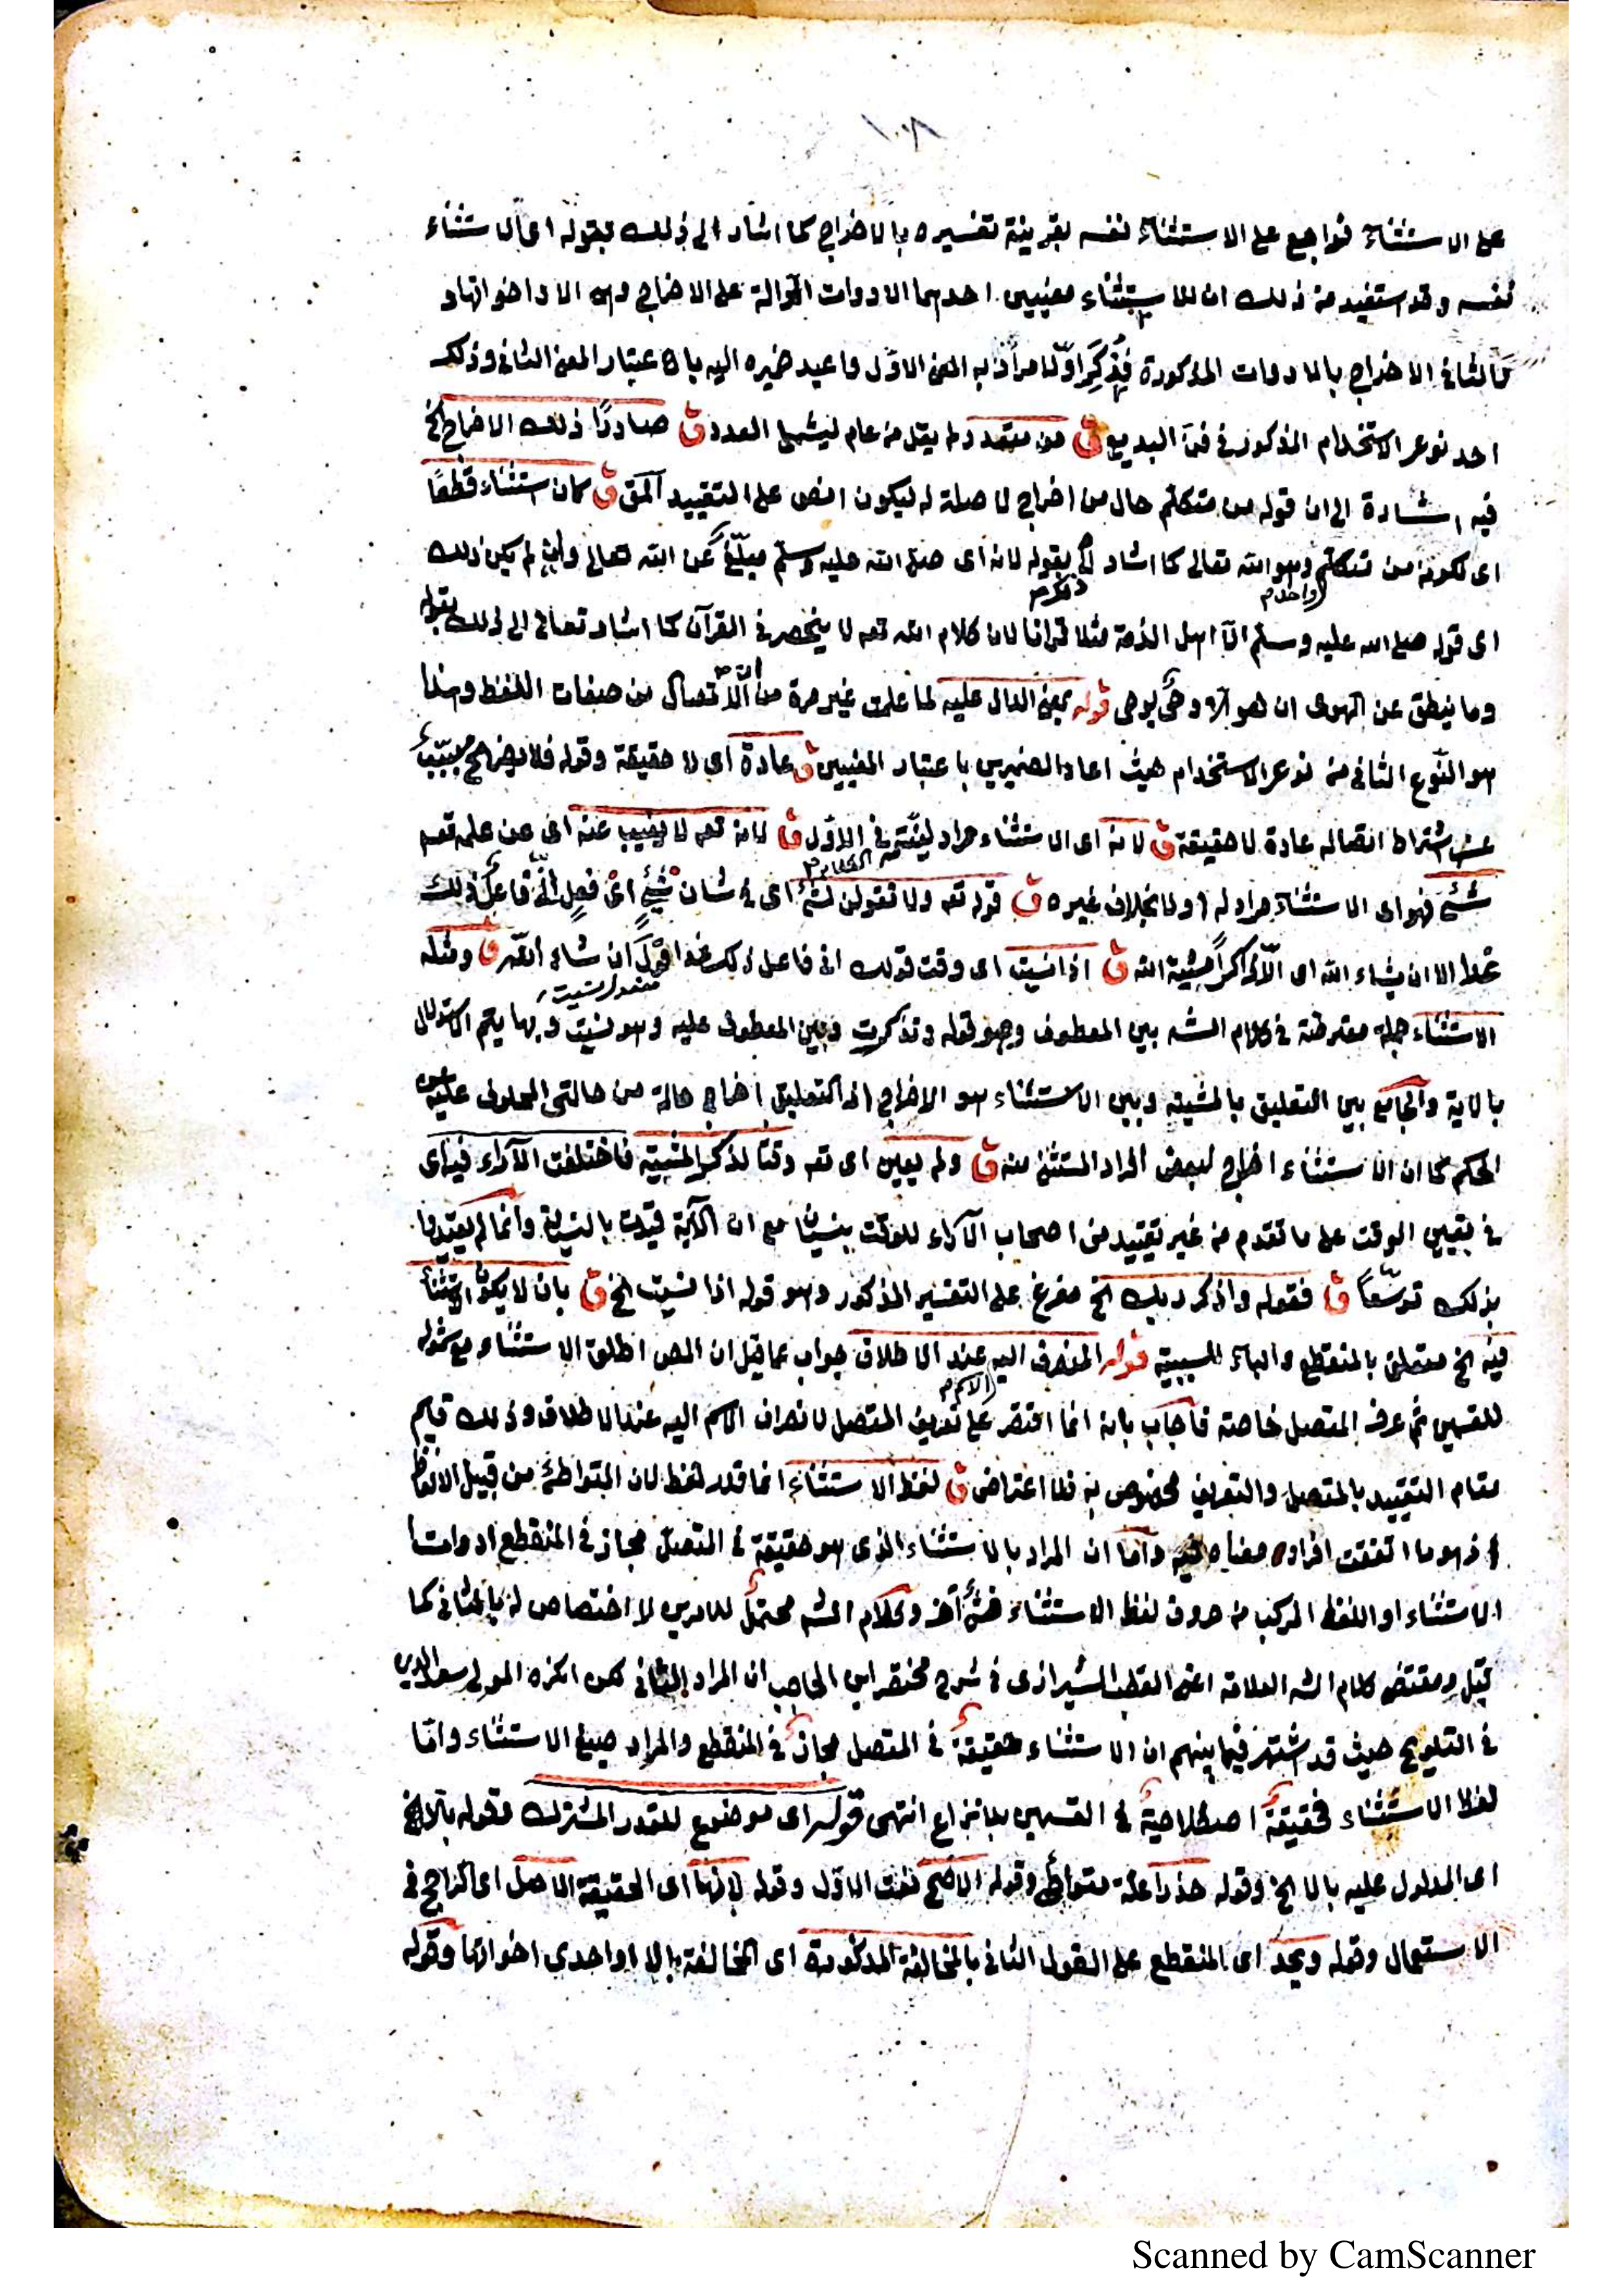 ١٠٨
على الاستثناء فراجع على الاستثناء نفسه بقرينة تفسيره بالاخراج كما اشار الى ذلك بقوله اى الاستثناء
نفسه وقد استفيد من ذلك ان للاستثناء معنيين احدهما الادوات الدوالة على الاخراج وهى الا واخواتها و
الثانى الاخراج بالادوات المذكورة فذكر اوّلا مرادا به المعنى الاوّل واعيد ضميره اليه باعتبار المعنى الثانى وذلك
احد نوعى الاستخدام المذكور فى فنّ البديع ق من متعدد ولم يقل من عام ليشمل العدد ق صادرًا ذلك الاخراج الخ
فيه اشارة الى ان قوله من متكلم حال من اخراج لا صلة له ليكون انص على التقييد ق كان استثناء قطعًا
اى لكونه من متكلم واحد وهو الله تعالى كما اشار بقوله لانه اى صلى الله عليه وسلم مبلّغ عن الله تعالى وان لم يكن ذلك
اى قوله صلى الله عليه وسلم الّا اهل الذمة مثلا قرانا لان كلام الله تعه لا ينحصر فى القرآن كما اشار تعالى الى ذلك بقوله
وما ينطق عن الهوى ان هو الا وحىٌ يوحى قوله بمعنى الدال عليه لما علمت غير مرة من انّ الاتصال من صفات اللفظ وهذا
هو النّوع الثانى من نوعى الاستخدام حيث اعاد الضميرين باعتبار المعنيين ق عادة اى لا حقيقة وقوله فلا يضر الخ
عن اشتراط اتصاله عادة لا حقيقة ق لانه اى الاستثناء مراد ليفته فى الاوّل ق لانه تعه لا يغيب عنه اى عن علمه تعه
شئ فهو اى الاستثناء مراد له اولا بخلاف غيره ق قوله تعه ولا تقولن لشئ اى فى شان شئ اى فعل انّى فاعل ذلك
غدا الا ان يشاء الله اى الّا ذاكرًا مشية الله ق اذا نسيت اى وقت قولك انى فاعل ذلك غدا قول ان شاء الله ق ومثله
الاستثناء جملة معترضة فى كلام الشه بين المعطوف وهو قوله وتذكرت وبين المعطوف عليه وهو نسيت وبها يتم الاستدلال
بالاية والجامع بين التعليق بالمشية وبين الاستثناء هو الاخراج اذ التعليق اخراج حالة من حالتى المحلوف عليه عن
الحكم كما ان الاستثناء اخراج لبعض افراد المستثنى منه ق ولم يعين اى تعه وقتًا لذكر المشية فاختلفت الآراء فيه اى
فى تعيين الوقت على ما تقدم من غير تقييد من اصحاب الآراء للوقت بنسيان مع ان الآية قيدت بالنسيان وانما لم يقيدوا
بذلك توسّعًا ق فقوله واذكر ربك الخ مفرغ على التفسير المذكور وهو قوله اذا نسيت الخ ق بان لا يكون المستثنى
فيه الخ متعلق بالمنقطع والباء للسببية قوله المنصرف اليه عند الاطلاق جواب عما قيل ان المص اطلق الاستثناء مع شموله
للقسمين ثم عرف المتصل خاصة فأجاب بانه انما اقتصر على تعريف المتصل لانصراف الاسم اليه عند الاطلاق وذلك قايم
مقام التقييد بالمتصل والتعريف مخصوص به فلا اعتراض ق لفظ الاستثناء انما قدر لفظ لان المتواطئ من قبيل الالفاظ
اذ هو ما اتفقت افراده معناه فيه وامّا ان المراد بالاستثناء الذى هو حقيقة فى المتصل مجاز فى المنقطع ادوات
الاستثناء او اللفظ المركب من حروف لفظ الاستثناء فشئ آخر وكلام الشه محتمل للامرين لا اختصاص له بالثانى كما
قيل ومقتضى كلام الشه العلامة اعنى القطب الشيرازى فى شرح مختصر ابن الحاجب ان المراد الثانى لكن انكره المولى سعد الدين
فى التلويح حيث قد اشتهر فيما بينهم ان الاستثناء حقيقة فى المتصل مجاز فى المنقطع والمراد صيغ الاستثناء وامّا
لفظ الاستثناء فحقيقة اصطلاحية فى القسمين بلا نزاع انتهى قوله اى موضوع للقدر المشترك مقوله بالا الخ
اى المدلول عليه بالا الخ وقوله حذرا علة متواطئ وقوله الاصح نعت الاوّل وقوله لانّها اى الحقيقة الاصل اى الراجح فى
الاستعمال وقوله ويحد اى المنقطع على القول الثانى بالمخالفة المذكورة اى المخالفة بالا او احدى اخواتها وقوله
Scanned by CamScanner